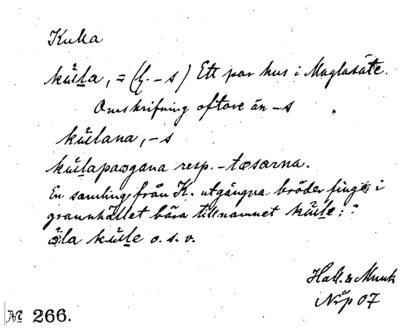 Kulla
kulla, = (h. -s) Ett par hus i Maglasäte.
Omskrifning oftare än -s
kullana, -s
kullapagana resp. -tøsarna.
En samling från K. utgångna bröder finge i
grannhållet bära tillnamnet kulle:
åla kulle o. s. v.
Hall. & Munk
Nrp 07
№ 266.